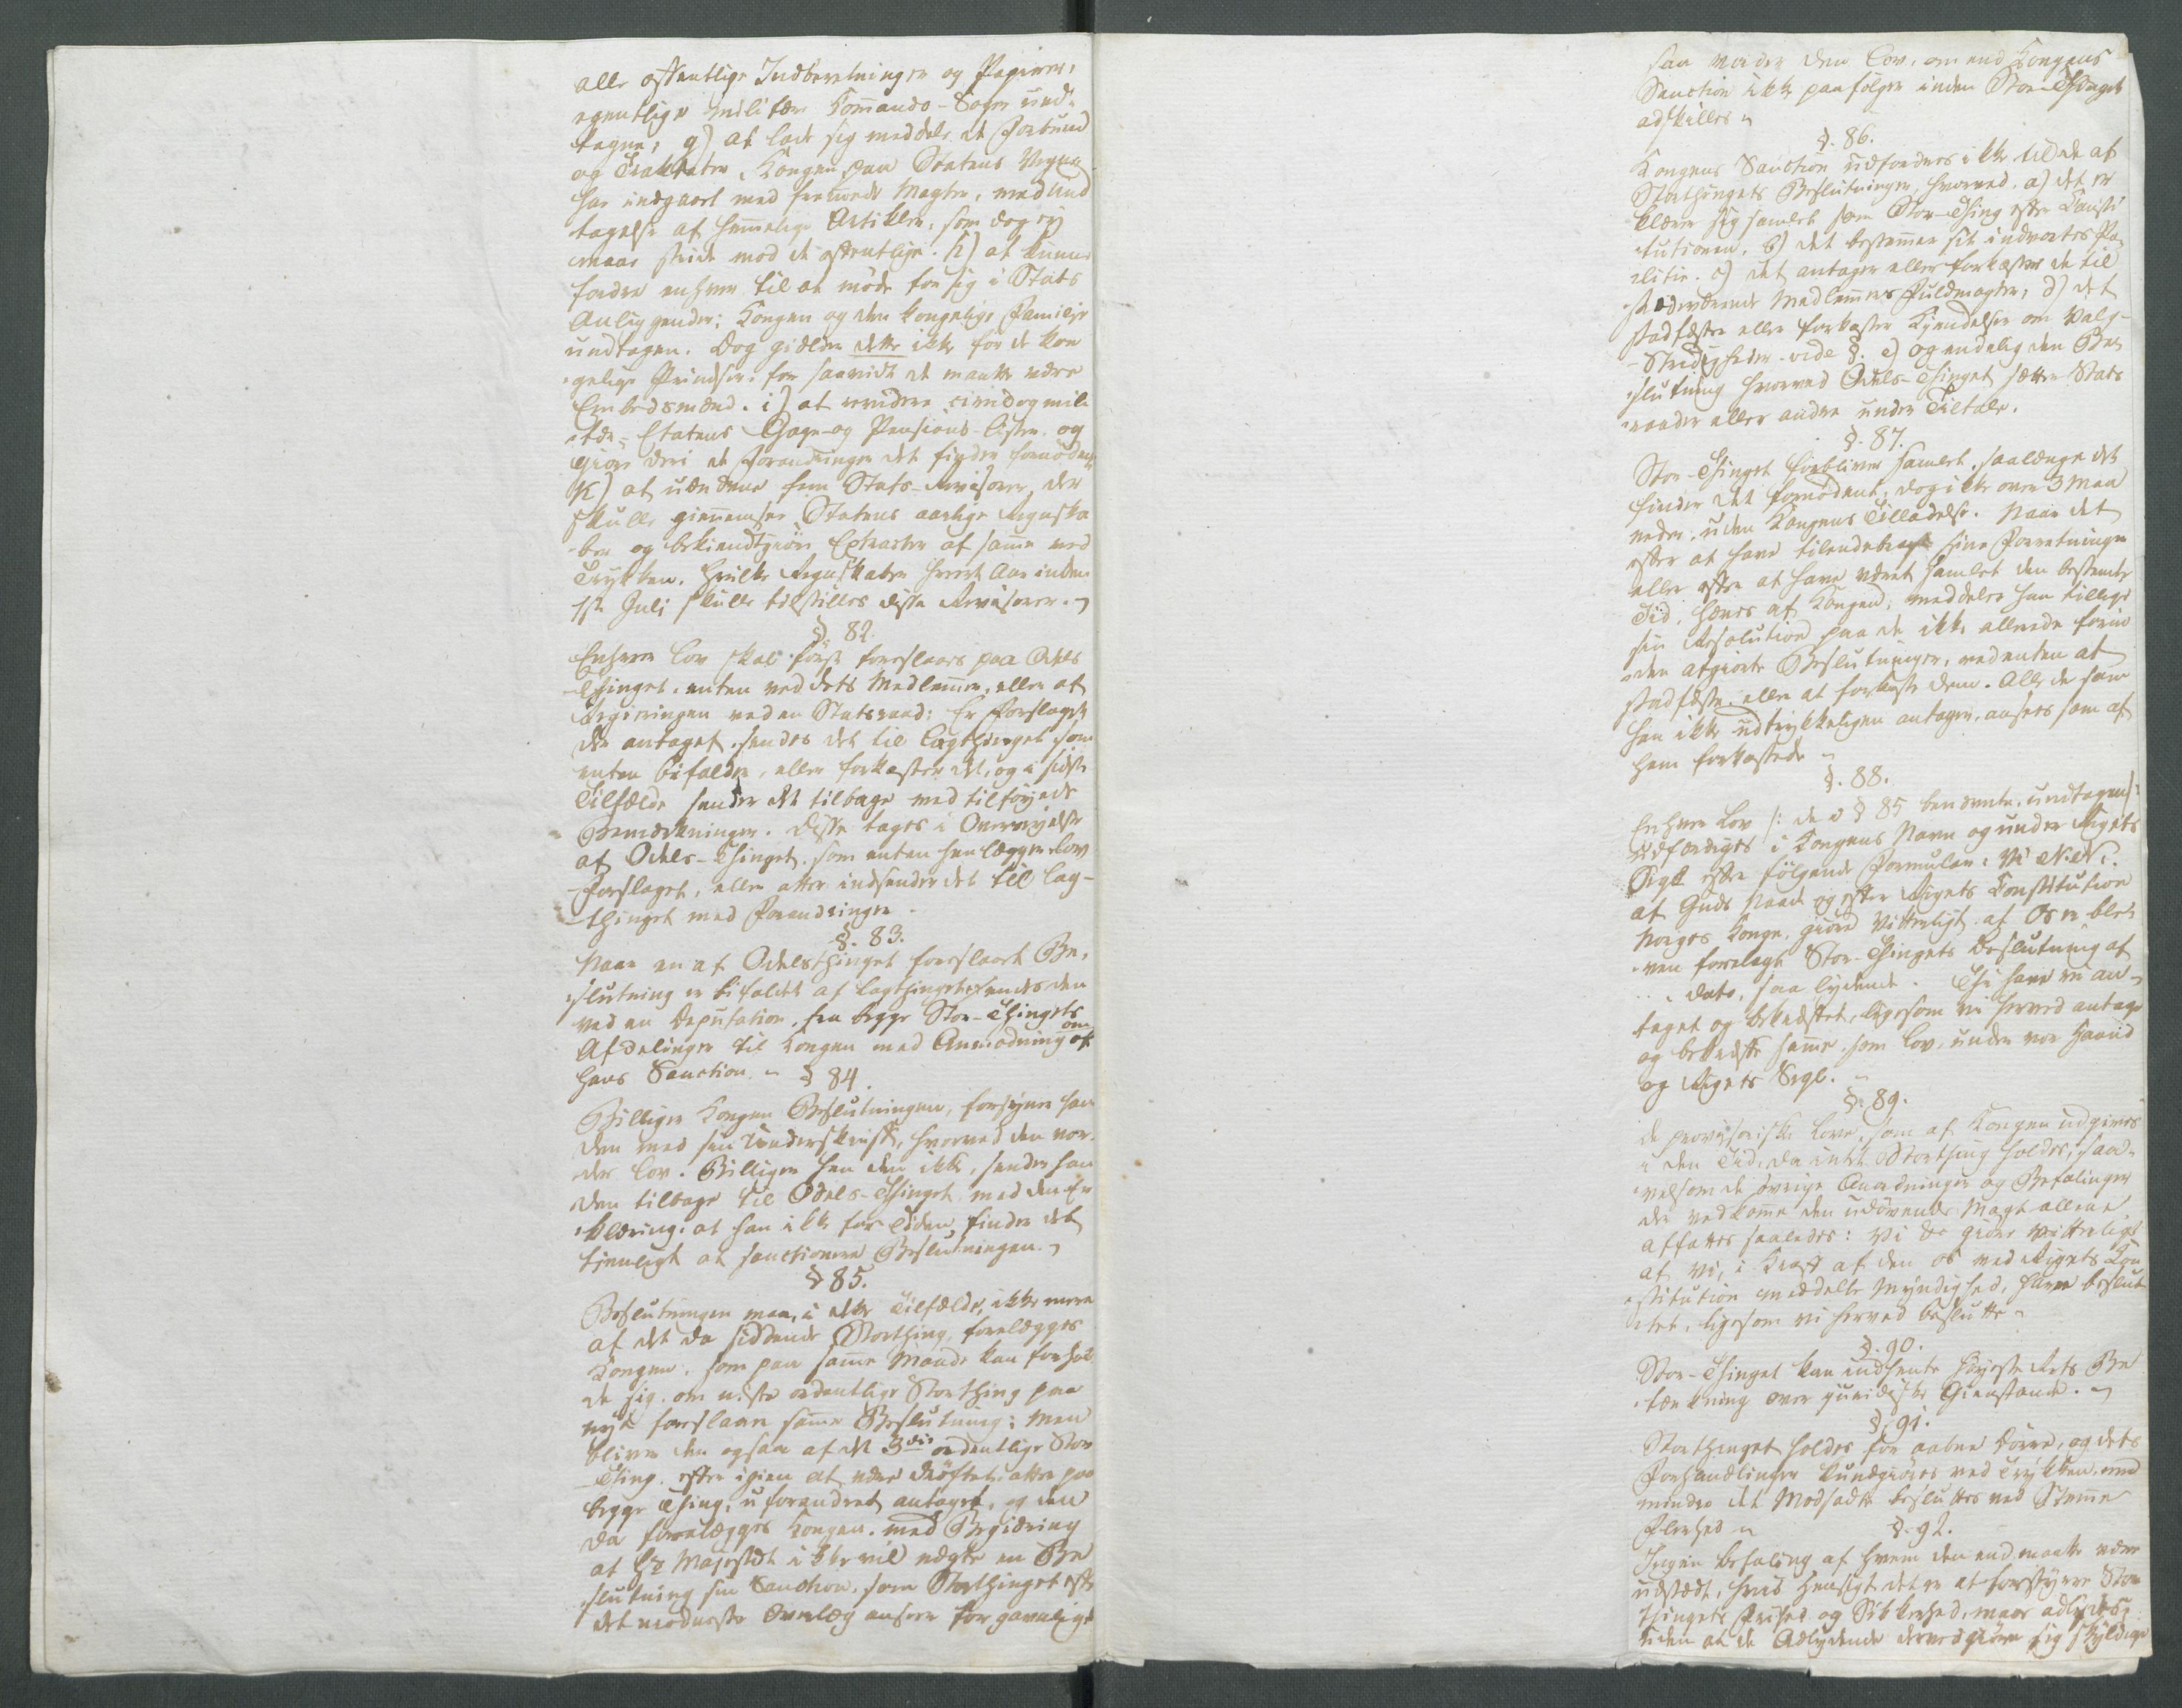 alle offentlige Indberetninger og Papirer,
egentlige militær Com̄ando-Sager und-
tagne; g) at lade sig meddele de Forbund
og Traktater, Kongen paa Statens Vegne
har indgaaet med fremede Magter, med Und
tagelse af hem̄elige Artikler, som dog ej
maae stride mod de offentlige. h) at kunne
fordre enhver til at møde for sig i Stats
Anliggender; Kongen og den kongelige Familje
undtagen. Dog gielder dette ikke for de kon
gelige Prindser, for saavidt de maatte være
Embedsmænd. i) at revidere civil og mili
tær-Etatens Gage- og Pensions-Lister, og
giøre deri de Forandringer det finder fornødne
K) at udnævne fem Stats-Revisorer, der
skulle gien̄emsee Statens aarlige Regnska
ber og bekiendtgiøre Extracter af sam̄e ved
Trykken, hvilke Regnskaber hvert Aar inden
1ste Julj skulle tilstilles disse Revisorer.
§. 82.
Enhver Lov skal først foreslaaes paa Odels
Thinget, enten ved dets Medlem̄er, eller af
Regieringen ved en Statsraad; Er Forslaget
der antaget, sendes det til Lagthinget som
enten bifalder, eller forkaster det, og i sidste
Tilfælde sender det tilbage med tilføyede
Bemærkninger. Disse tages i Overvejelse
af Odels-Thinget, som enten henlægger Lov
Forslaget, eller atter indsender det til Lag-
thinget med Forandringer.
§. 83.
Naar en af Odelsthinget foreslaaet Be-
slutning er bifaldet af Lagthinget, sendes den
ved en Deputation fra begge Stor-Thingets
Afdelinger til Kongen med Anmodning om
hans Sanction.
§ 84.
Billiger Kongen Beslutningen, forsyner han
den med sin Underskrift, hvorved den vor-
der Lov. Billiger han den ikke, sender han
den tilbage til Odels-Thinget med den Er
klæring, at han ikke for Tiden finder det
tienligt at sanctionere Beslutningen.
§ 85.
Beslutningen maa, i dette Tilfælde, ikke mere
af det da siddende Storthing forelægges
Kongen, som paa sam̄e Maade kan forhol
de sig, om næste ordentlige Storthing paa
nye foreslaaer sam̄e Beslutning; men
bliver den ogsaa af det 3die ordentlige Stor
Thing, efter igien at være drøftet, atter paa
begge Thing, uforandret antaget, og den
da forelægges Kongen, med Begiæring
at Hs Majestæt ikke vil nægte en Be
slutning sin Sanction, som Storthinget efter
det modneste Overlæg anseer for gavnligt
saa vorder den Lov, om end Kongens
Sanction ikke paafølger inden Stor-Thinget
adskilles
§. 86.
Kongens Sanction udfordres ikke til de af
Storthingets Beslutninger, hvorved, a) det er
klærer sig samlet som Stor-Thing efter Consti
tutionen, b) det bestem̄er sit indvortes Po
litie. c) det antager eller forkaster de til
stædeværende Medlem̄ers Fuldmagter; d) det
stadfæster eller forkaster Kjendelser om Valg-
Stridigheder - vide §: e) og endelig den Be
slutning hvorved Odels-Thinget sætter Stats
raader eller andre under Tiltale.
§. 87.
Stor-Thinget forbliver samlet, saalænge det
finder det fornødent, dog ikke over 3 Maa
neder, uden Kongens Tilladelse. Naar det
efter at have tilendebragt sine Forretninger
eller efter at have været samlet den bestemte
Tid, hæves af Kongen, meddeler han tillige
sin Resolution paa de ikke allerede forin
den afgiorte Beslutninger, ved enten at
stadfæste, eller at forkaste dem. Alle de som
han ikke udtrykkeligen antager, ansees som af
ham forkastede
§. 88.
Enhver Lov /: de i § 85 benævnte, undtagen :/
udfærdiges i Kongens Navn og under Rigets
Segl efter følgende Formular: Vi N.N.
af Guds Naade og efter Rigets Constitution
Norges Konge, giøre vitterligt at Os er ble-
ven forelagt Stor-Thingets Beslutning af
... Dato, saa lydende . Thi have vi an-
taget og bekræftet, ligesom vi herved antage
og bekræfte sam̄e, som Lov, under vor Haand
og Rigets Segl.
§. 89.
De provisoriske Love, som af Kongen udgives
i den Tid, da intet Storthing holdes, saa-
velsom de øvrige Anordninger og Befalinger
der vedkom̄e den udøvende Magt allene
affattes saaledes: Vi &c giøre vitterligt
at vi, i Kraft af den os ved Rigets Con
stitution meddelte Myndighed, have beslut
tet, ligesom vi herved beslutte
§. 90.
Stor-Thinget kan indhente Høyeste Rets Be
tænkning over juridiske Gienstande.
§. 91.
Storthinget holdes for aabne Dørre, og dets
Forhandlinger kundgiøres ved Trykken, med
mindre det Modsadte besluttes ved Stem̄e
Fleerhed
§. 92.
Ingen befaling af hvem den end maatte være
udstædt, hvis Hensigt det er at forstyrre Stor
Thingets Frihed og Sikkerhed, maae adlydes,
uden at de Adlydende derved giøre sig skyldige